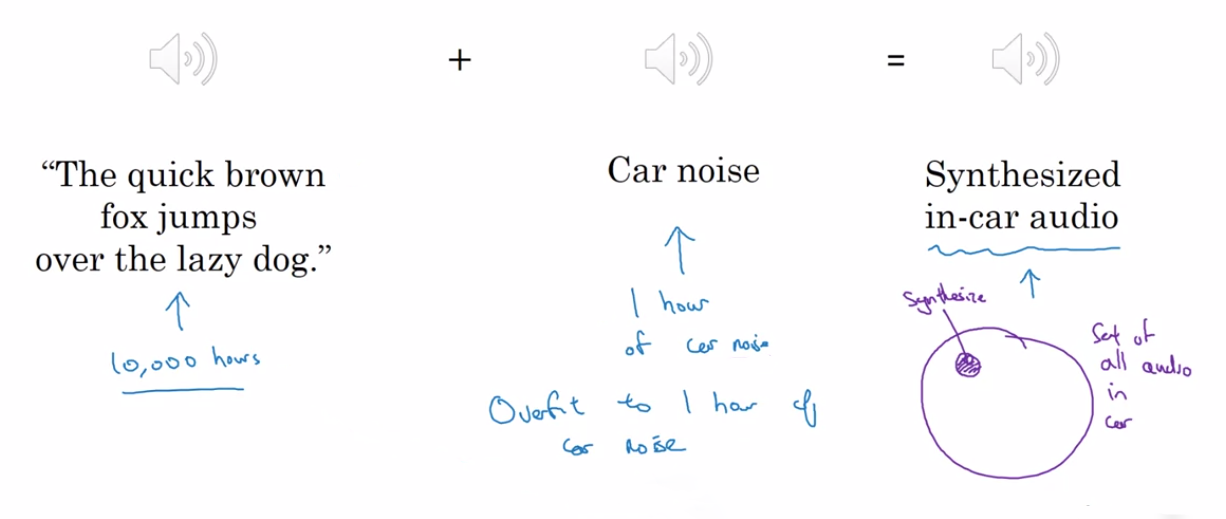 +
=
“The quick brown
fox jumps
over the lazy dog.”
10,000 hours
Car noise
1 hour
of car noise
Overfit to 1 hour of
car noise
Synthesized
in-car audio
Synthesize
Set of
all audio
in
car